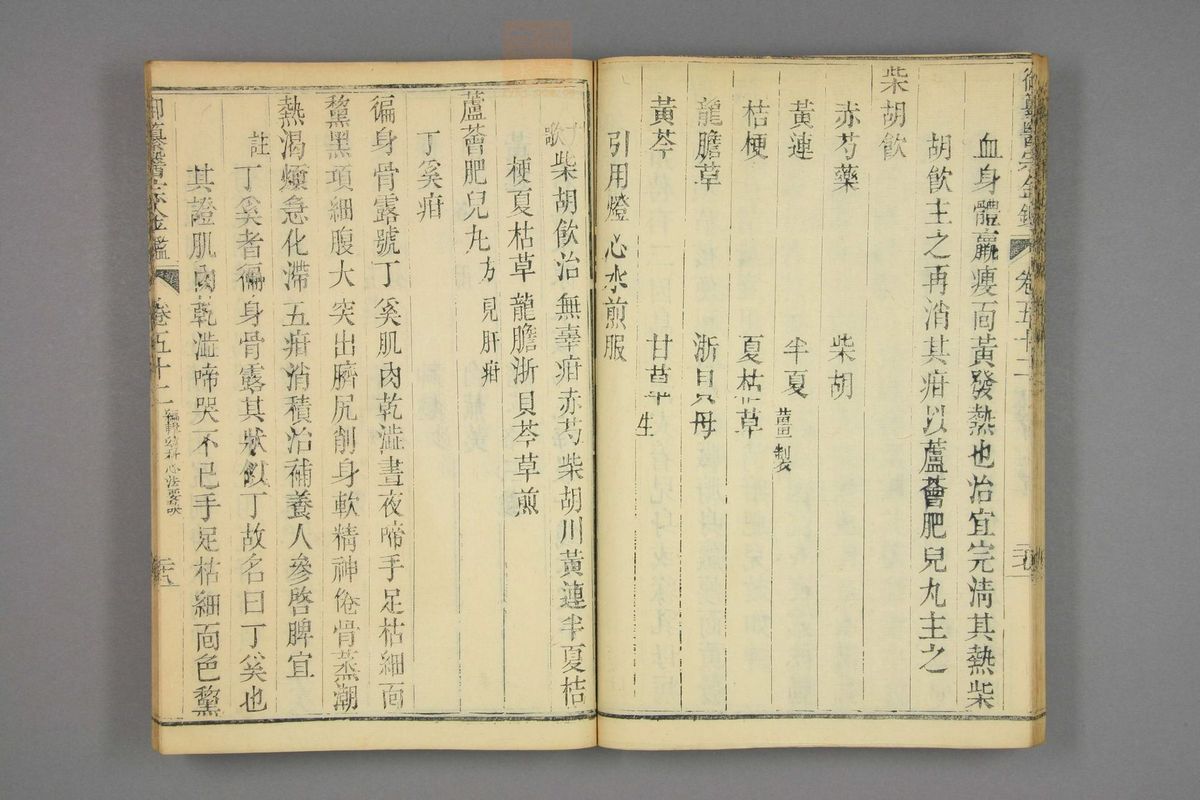 御纂醫宗金鑑 卷五十二
血身體羸瘦面黃發熱也治宜完清其熱柴
胡飲主之再消其疳以蘆薈肥兒丸主之
柴胡飲
赤芍藥 柴胡
黃連 半夏薑製
桔梗 夏枯草
龍膽草 浙貝母
黃芩 甘草生
引用燈心水煎服
歌 柴胡飲治無辜疳赤芍柴胡川黃連半夏桔
梗夏枯草龍膽浙貝芩草煎
蘆薈肥兒丸方見肝疳
丁奚疳
徧身骨露號丁奚肌肉乾澁晝夜啼手足枯細面
黧黑項細腹大突出臍尻削身軟精神倦骨蒸潮
熱渴煩急化滯五疳消積治補養人參啓脾宜
註 丁奚者徧身骨露其狀似丁故名曰丁奚也
其證肌肉乾澁啼哭不已手足枯細面色黧
御纂醫宗金鑑 卷五十二 編輯幼科心法要訣